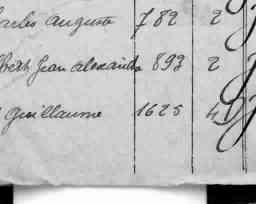 Charles Auguste 782 2
Jean Alexandre 893 2
Guillaume 1625 4